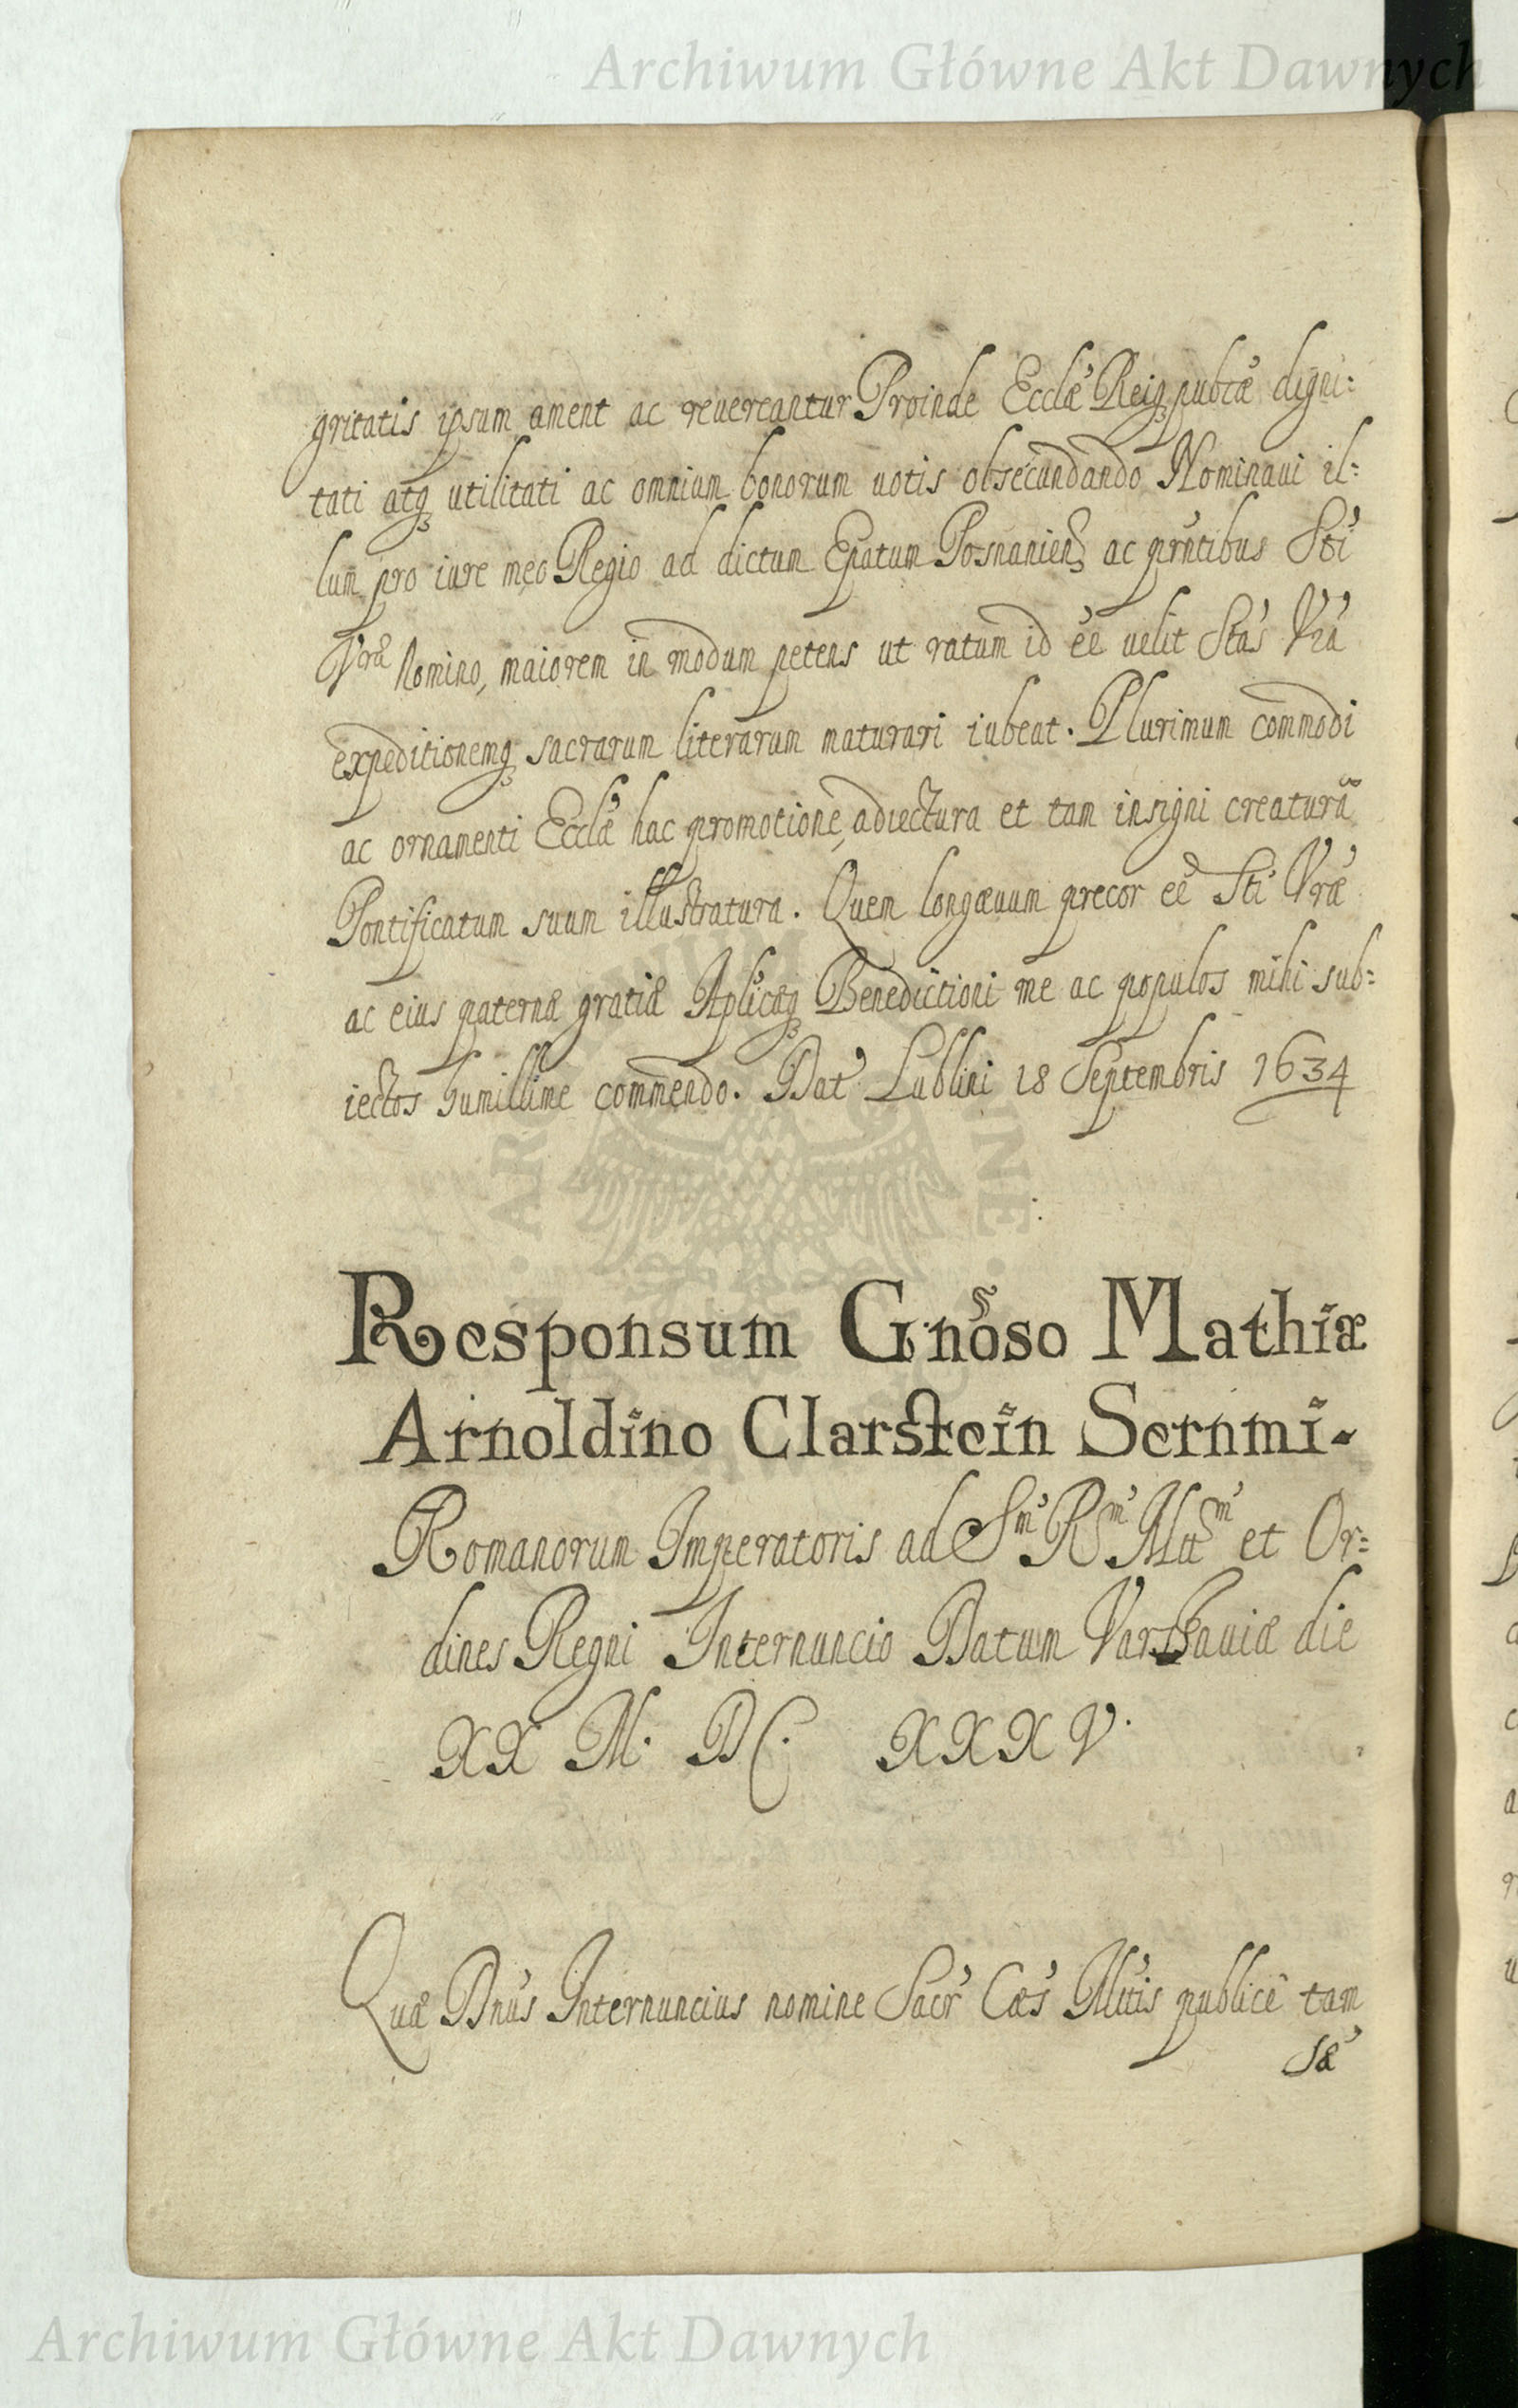 Archiwum Główne Akt Dawnych
gritatis ipsum ament ac reuereantur Proinde Ecclæ' Reiq₃ pub̄cæ digni:
tati atq₃ utilitati ac omnium bonorum uotis obsecundando Nominaui il:
lum pro iure meo Regio ad dictum Ep̄atum Posnaniens ac pr̄ntibus S̄ti'
Vrā Nomino, maiorem in modum petens ut ratum id ēē uelit S̄tas' Vrā'
expeditionemq₃ sacrarum literarum maturari iubeat. Plurimum commodi
ac ornamenti Ecclæ' hac promotione, adiectura et tam insigni creaturā
Pontificatum suum illustratura. Quem longæuum precor ēē S̄ti' Vræ'
ac eius paternæ gratiæ Aplicæq₃ Benedictioni me ac populos mihi sub:
iectos humillime commendo. Dat' Lublini 18 Septembris 1634
Responsum Gn̄oso Mathiæ
Arnoldino Clarstein Sernmi-
Romanorum Imperatoris ad Sm' Rm' Mttm' et Or:
dines Regni Internuncio Datum Varsauiæ die
XX M. DC. XXXV.
Quæ Dn̄us Internuncius nomine Sacr' Cæs' Mttis publicè tam
sæ'
Archiwum Główne Akt Dawnych